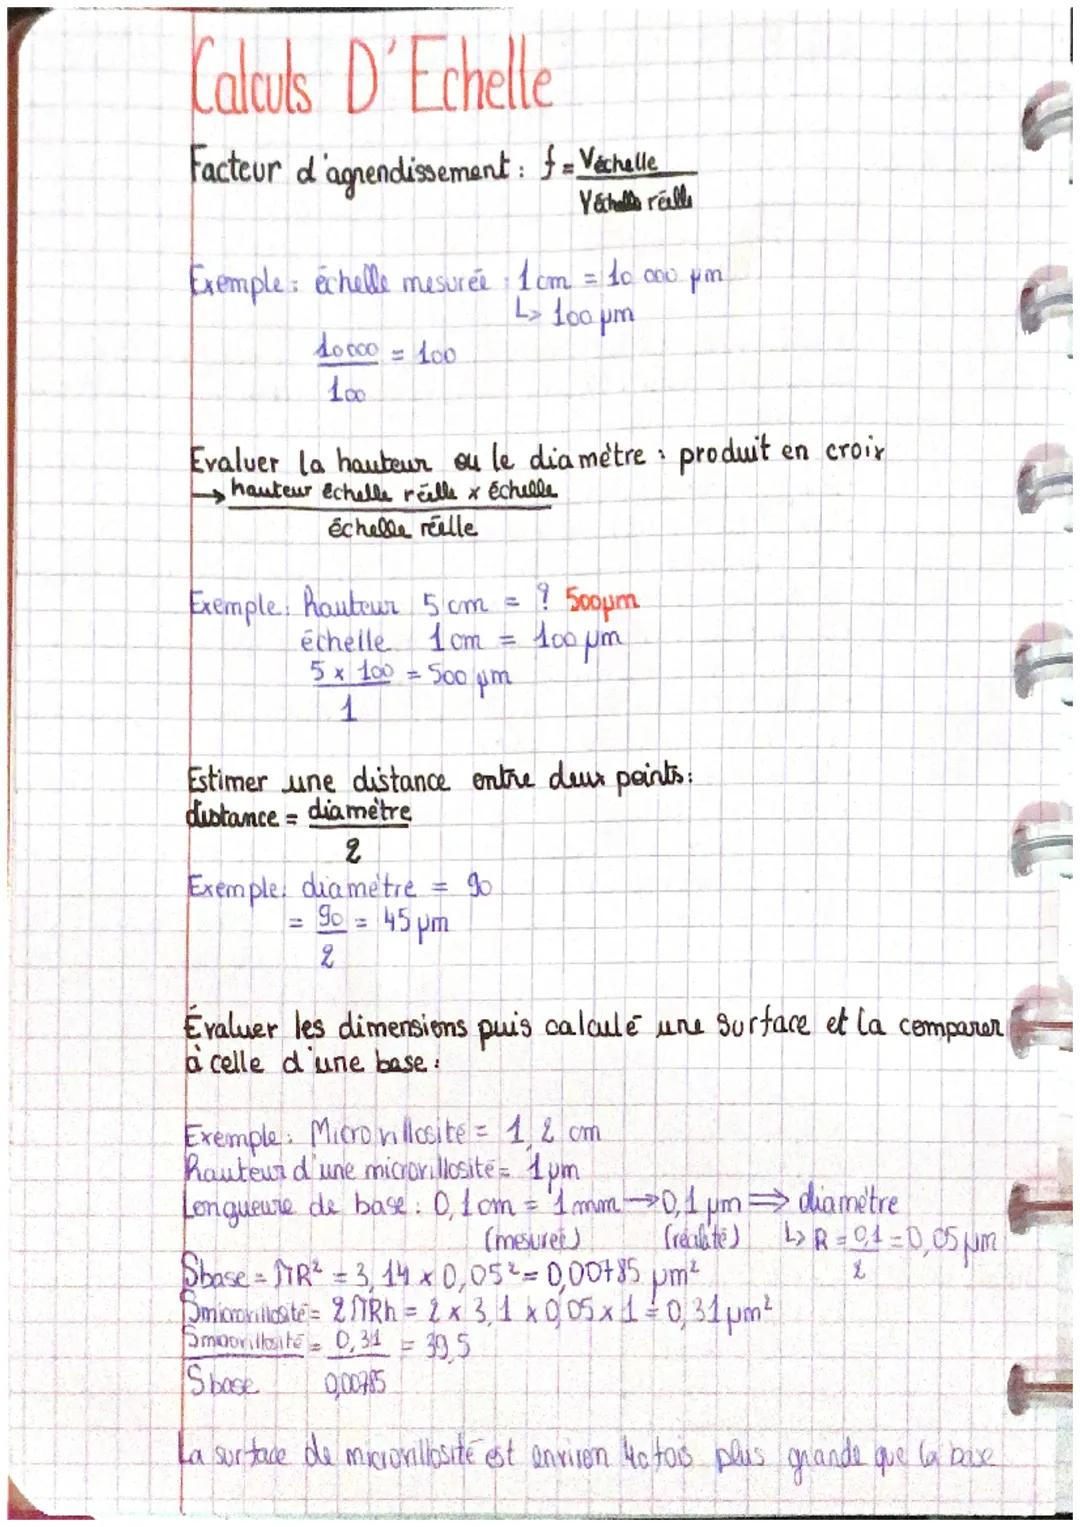 Calculs D'Echelle
Facteur d'agrendissement : f = Véchelle
Véchelle réelle
Exemple : échelle mesurée : 1 cm = 10 000 µm
↳ 100 µm
10000 = 100
100
Evaluer la hauteur ou le diamètre : produit en croix
→ hauteur échelle réelle x échelle
échelle réelle
Exemple : hauteur 5 cm = ? 500µm
échelle 1 cm = 100 µm
5 x 100 = 500 µm
1
Estimer une distance entre deux points :
distance = diamètre
2
Exemple : diamètre = 90
= 90 = 45 µm
2
Évaluer les dimensions puis calculé une surface et la comparer
à celle d'une base :
Exemple : Microvillosité = 1,2 cm
hauteur d'une microvillosité = 1µm
Longueure de base : 0,1 cm = 1 mm → 0,1 µm ⇒ diamètre
(mesurer) (réalité) ↳ R = 0,1 = 0,05 µm
2
Sbase = πR² = 3,14 x 0,05² = 0,00785 µm²
Smicrovillosité = 2πRh = 2 x 3,1 x 0,05 x 1 = 0,31 µm²
Smicrovillosité = 0,31 = 39,5
Sbase 0,00785
La surface de microvillosité est environ 40 fois plus grande que la base